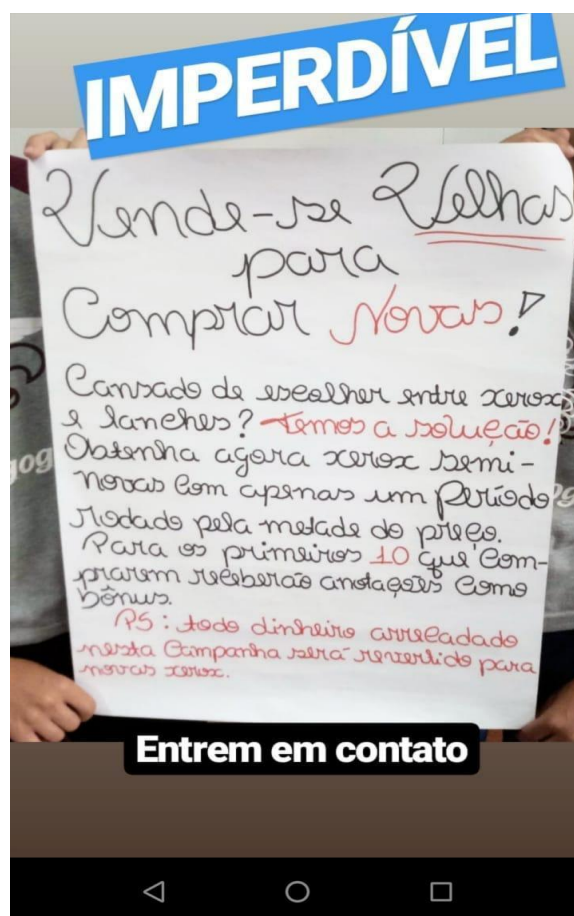 IMPERDÍVEL
Vende-se Velhas
para
Comprar Novas!
Cansado de escolher entre xerox
e lanches? Temos a solução!
Obtenha agora xerox semi-
novas com apenas um Período
Rodado pela metade do preço.
Para os primeiros 10 que com-
prarem receberão anotações como
bônus.
PS: todo dinheiro arrecadado
nesta Campanha será revertido para
novas xerox.
Entrem em contato